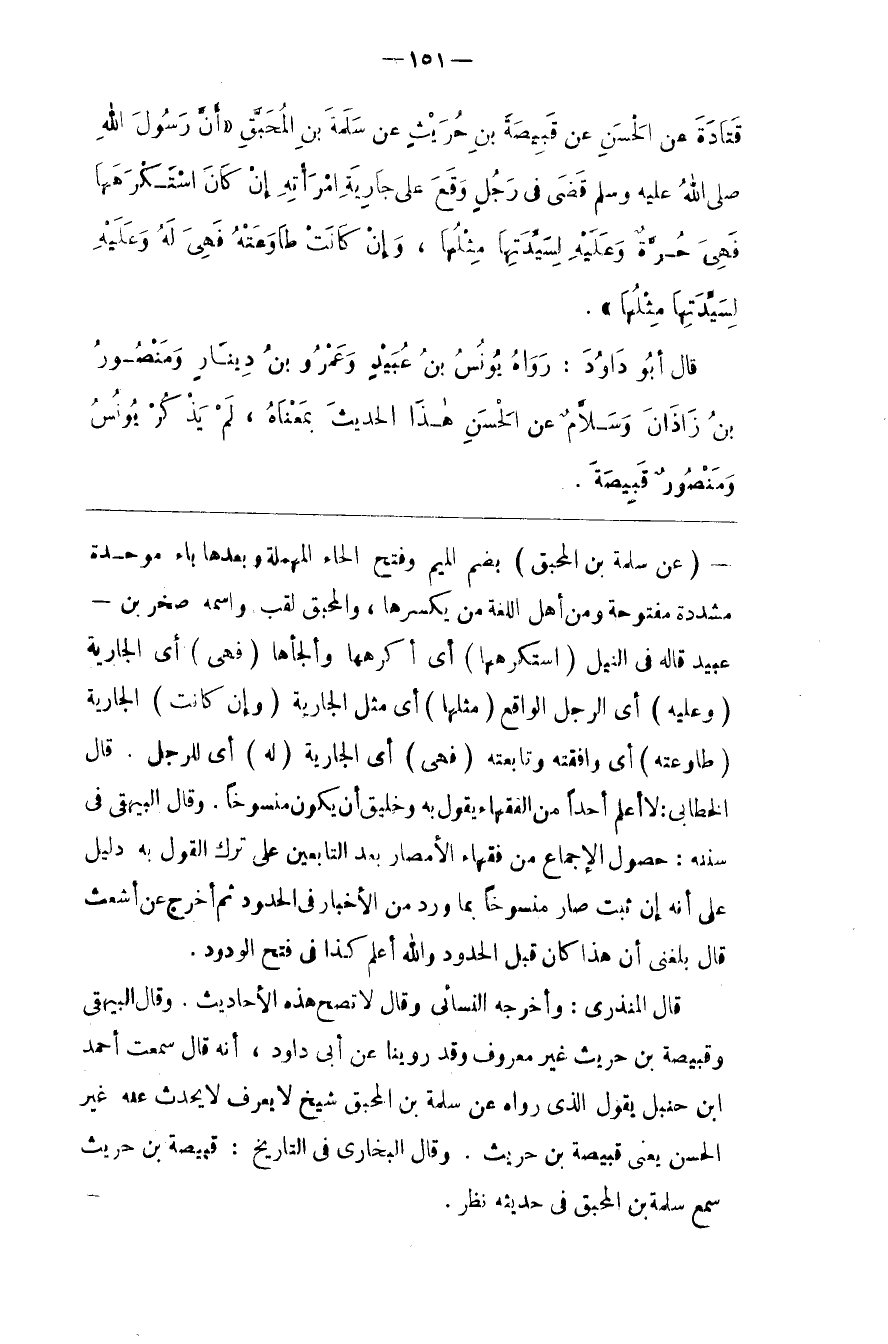 —١٥١—
قَتَادَةَ عن الْحَسَنِ عن قَبِيصَةَ بنِ حُرَيْثٍ عن سَلَمَةَ بنِ الْمُحَبَّقِ «أَنَّ رَسُولَ اللهِ
صلى اللهُ عليه وسلم قَضَى فى رَجُلٍ وَقَعَ عَلَى جَارِيَةِ امْرَأَتِهِ إِنْ كَانَ اسْتَكْرَهَهَا
فَهِىَ حُرَّةٌ وَعَلَيْهِ لِسَيِّدَتِهَا مِثْلُهَا ، وَإِنْ كَانَتْ طَاوَعَتْهُ فَهِىَ لَهُ وَعَلَيْهِ
لِسَيِّدَتِهَا مِثْلُهَا» .
قال أَبُو دَاوُدَ : رَوَاهُ يُونُسُ بنُ عُبَيْدٍ وَعَمْرُو بنُ دِينَارٍ وَمَنْصُورُ
بنُ زَاذَانَ وَسَلاَّمٌ عن الْحَسَنِ هٰذَا الحديثَ بِمَعْنَاهُ ، لَمْ يَذْكُرْ يُونُسُ
وَمَنْصُورٌ قَبِيصَةَ .
— ( عن سلمة بن المحبق ) بضم الميم وفتح الحاء المهملة وبعدها باء موحدة
مشددة مفتوحة ومن أهل اللغة من يكسرها ، والمحبق لقب واسمه صخر بن —
عبيد قاله فى النيل ( استكرهها ) أى أكرهها وألجأها ( فهى ) أى الجارية
( وعليه ) أى الرجل الواقع ( مثلها ) أى مثل الجارية ( وإن كانت ) الجارية
( طاوعته ) أى وافقته وتابعته ( فهى ) أى الجارية ( له ) أى للرجل . قال
الخطابى : لا أعلم أحداً من الفقهاء يقول به وخليق أن يكون منسوخاً . وقال البيهقى فى
سننه : حصول الإجماع من فقهاء الأمصار بعد التابعين على ترك القول به دليل
على أنه إن ثبت صار منسوخاً بما ورد من الأخبار فى الحدود ثم أخرج عن أشعث
قال بلغنى أن هذا كان قبل الحدود والله أعلم كذا فى فتح الودود .
قال المنذرى : وأخرجه النسائى وقال لا تصح هذه الأحاديث . وقال البيهقى
وقبيصة بن حريث غير معروف وقد روينا عن أبى داود ، أنه قال سمعت أحمد
ابن حنبل يقول الذى رواه عن سلمة بن المحبق شيخ لا يعرف لا يحدث عنه غير
الحسن يعنى قبيصة بن حريث . وقال البخارى فى التاريخ : قبيصة بن حريث
سمع سلمة بن المحبق فى حديثه نظر . —